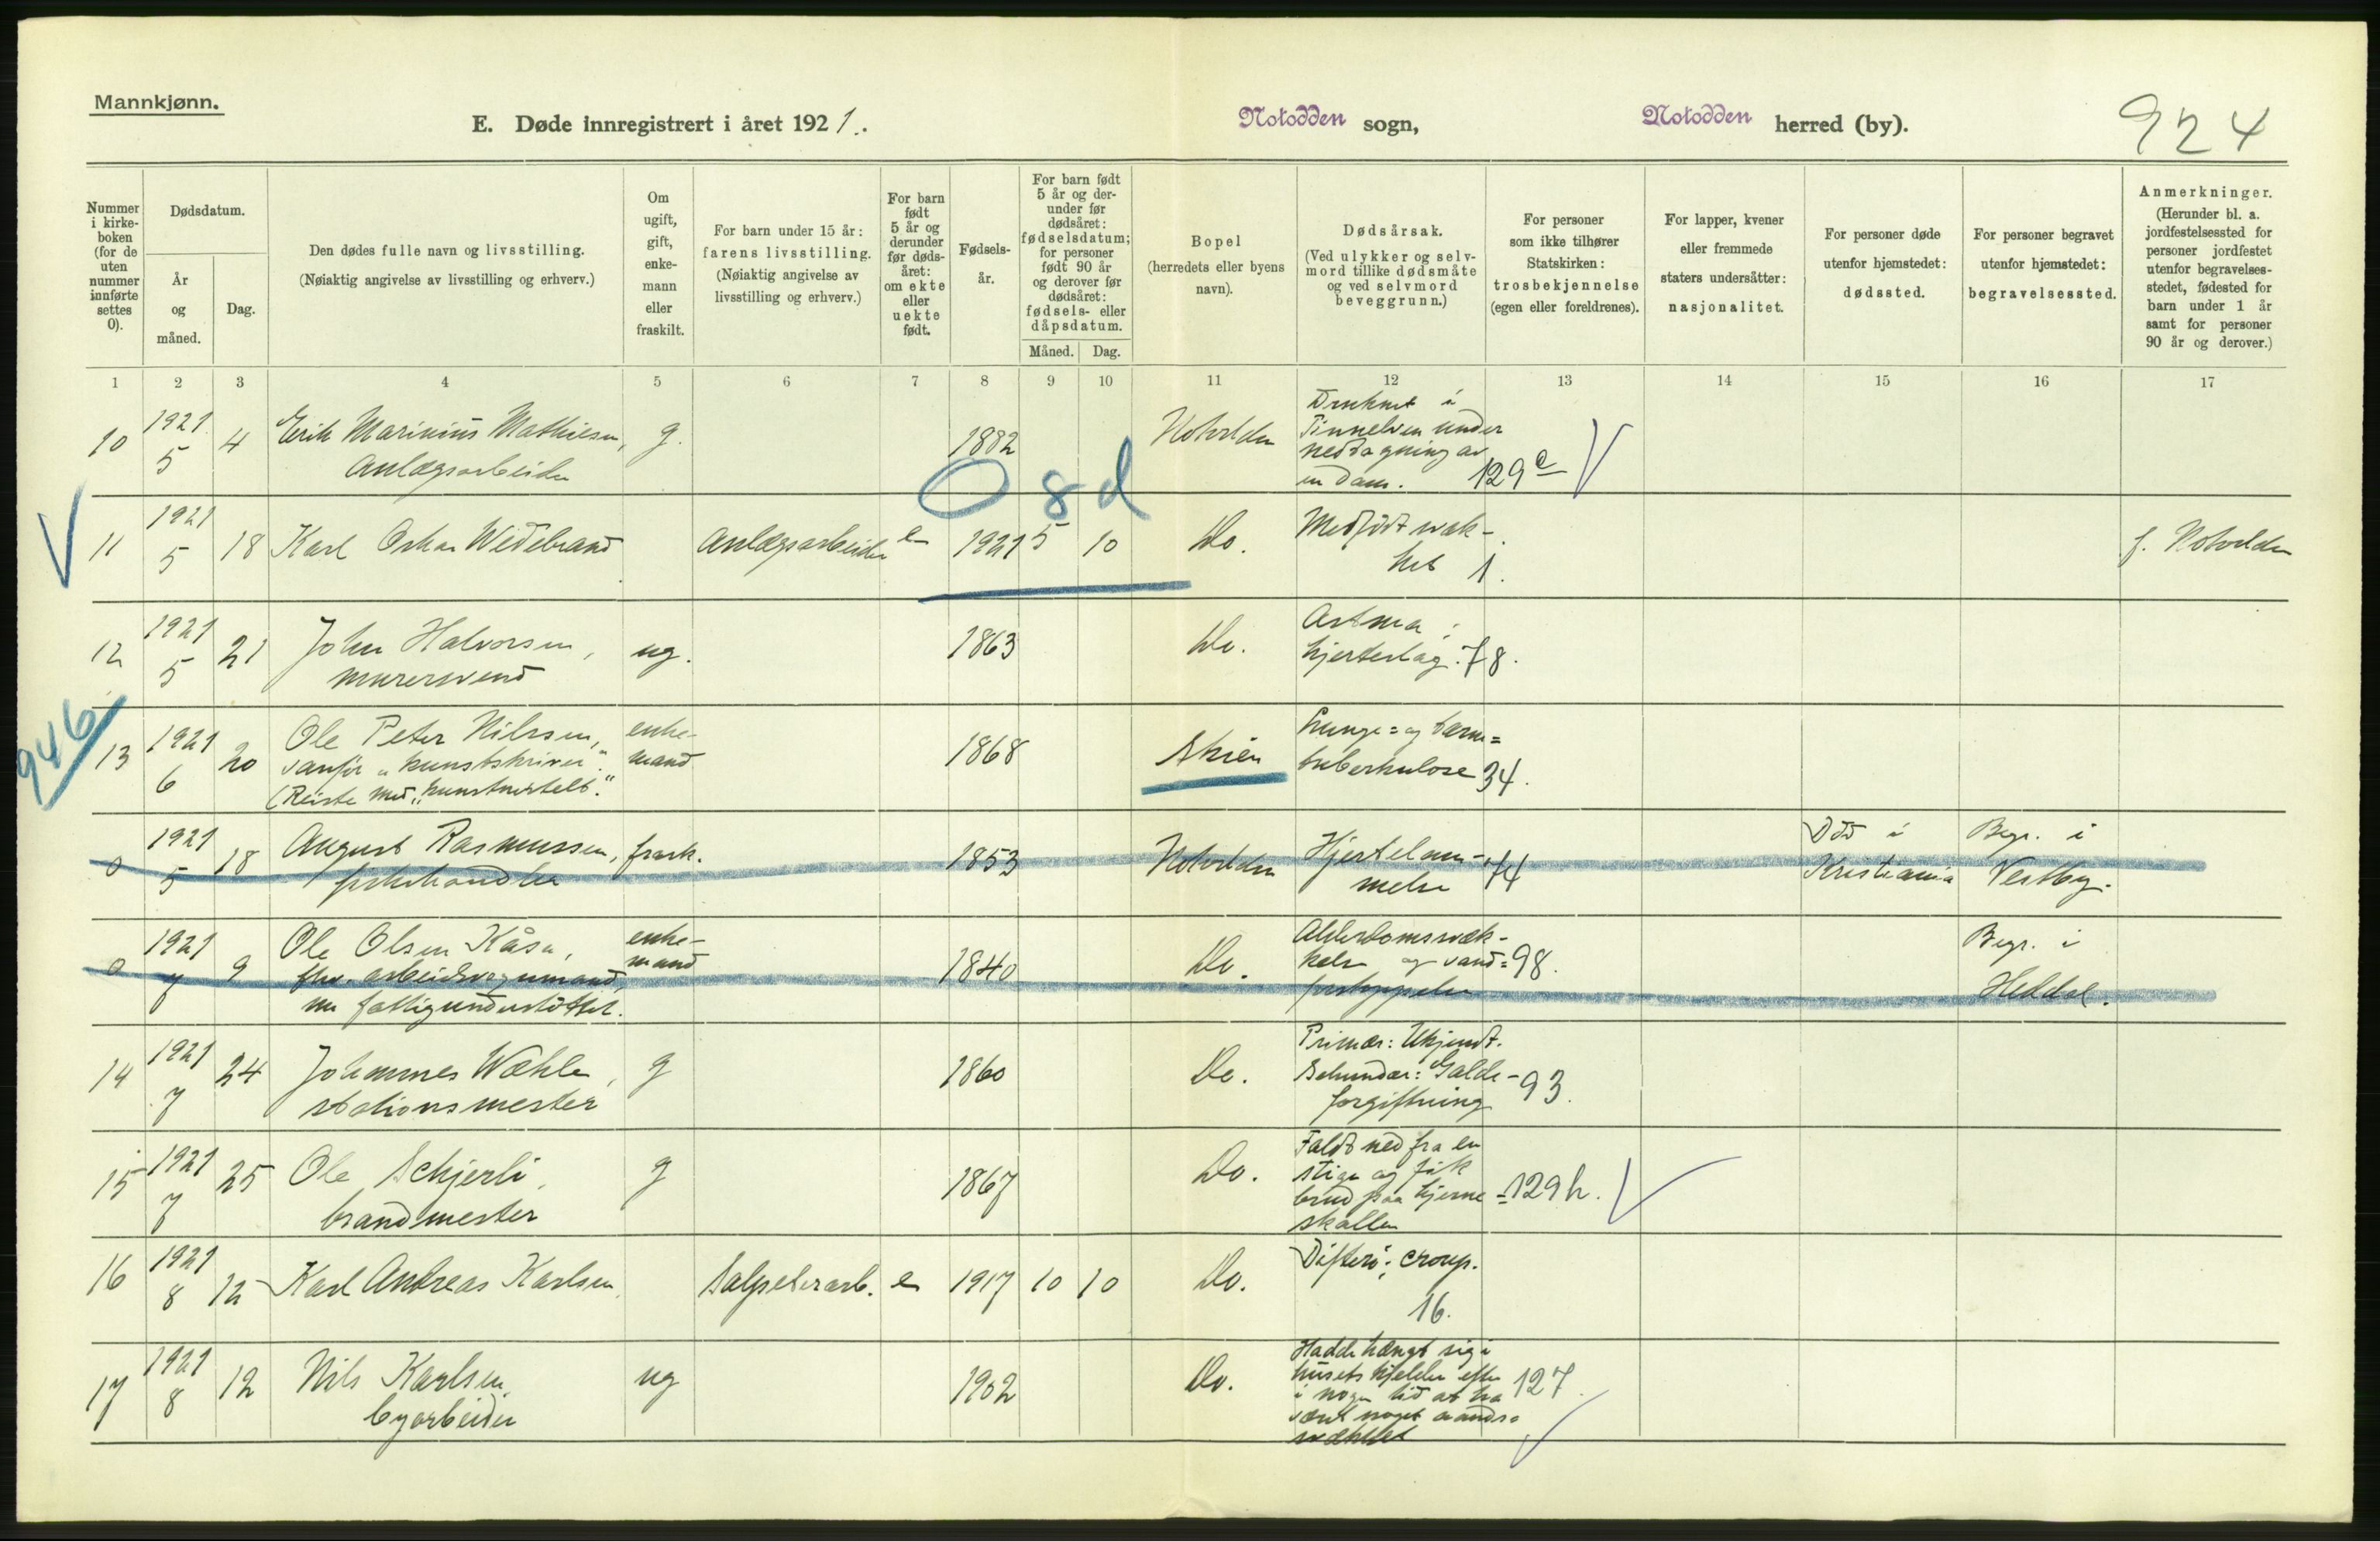 Mannkjønn.
E. Døde innregistrert i året 1921.
Notodden sogn,
Notodden herred (by).
924
Nummer i kirkeboken (for de uten nummer innførte settes 0).
Dødsdatum.
År og måned.
Dag.
Den dødes fulle navn og livsstilling.
(Nøiaktig angivelse av livsstilling og erhverv.)
Om ugift, gift, enkemann eller fraskilt.
For barn under 15 år: farens livsstilling.
(Nøiaktig angivelse av livsstilling og erhverv.)
For barn født 5 år og derunder før dødsåret: om ekte eller uekte født.
Fødselsår.
For barn født 5 år og derunder før dødsåret: fødselsdatum; for personer født 90 år og derover før dødsåret: fødsels- eller dåpsdatum.
Måned. Dag.
Bopel
(herredets eller byens navn).
Dødsårsak.
(Ved ulykker og selvmord tillike dødsmåte og ved selvmord beveggrunn.)
For personer som ikke tilhører Statskirken: trosbekjennelse (egen eller foreldrenes).
For lapper, kvener eller fremmede staters undersåtter: nasjonalitet.
For personer døde utenfor hjemstedet: dødssted.
For personer begravet utenfor hjemstedet: begravelsessted.
Anmerkninger.
(Herunder bl. a. jordfestelsessted for personer jordfestet utenfor begravelsesstedet, fødested for barn under 1 år samt for personer 90 år og derover.)
1 2 3 4 5 6 7 8 9 10 11 12 13 14 15 16 17
10 1921 5 4 Erik Marinius Mathiesen, Anlægsarbeider g. 1882 Notodden Druknet i Tinnelven under nedtagning av en dam. 129 e
0 8 d
11 1921 5 18 Karl Oskar Wedebrand Anlægsarbeider e 1921 5 10 Do. Medfødt svakhet 1. f. Notodden
12 1921 5 21 John Halvorsen, murersvend ug. 1863 Do. Astma; hjerteslag. 78.
946
13 1921 6 20 Ole Peter Nilssen, vanfør "kunstskriver". (Reiste med "kunstnertelt." enkemand 1868 Skien Lunge= og tarm= tuberkulose 34.
0 1921 5 18 August Rasmussen, fiskehandler frask. 1853 Notodden Hjertelammelse 74 Død i Kristiania Begr. i Vestby.
0 1921 7 9 Ole Olsen Kåsa, fhv. arbeidsvognmand, nu fattigunderstøttet. enkemand 1840 Do. Alderdomssvækkelse og vand= 98. Begr. i Heddal.
14 1921 7 24 Johannes Wæhle, stationsmester g 1860 Do. Primær: Ukjendt. Sekundær: Galdeforgiftning 93.
15 1921 7 25 Ole Schjerli, brandmester g 1867 Do. Faldt ned fra en stige og fik brud paa hjerne= skallen 129 h.
16 1921 8 12 Karl Andreas Karlsen Salpeterarb. e 1917 10 10 Do. Difteri; croup. 16.
17 1921 8 12 Nils Karlsen, byarbeider ug 1902 Do. Hadde hængt sig i husets kjelder efter i nogen tid at ha været noget aands= svækket 127.